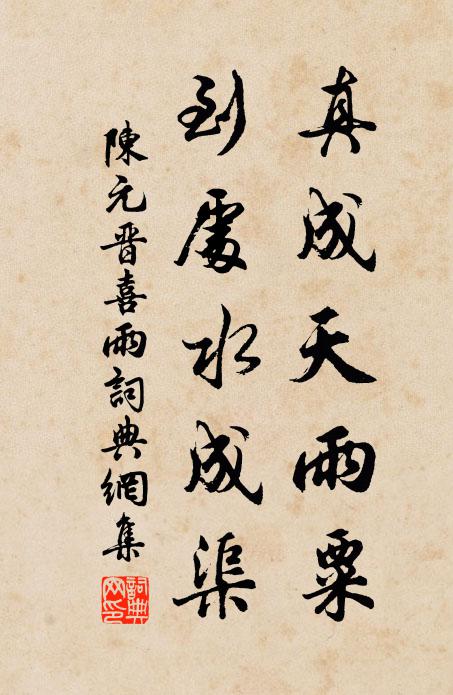 真成天雨粟
到處水成渠
陳元晉喜雨詞典網集
詞典網印